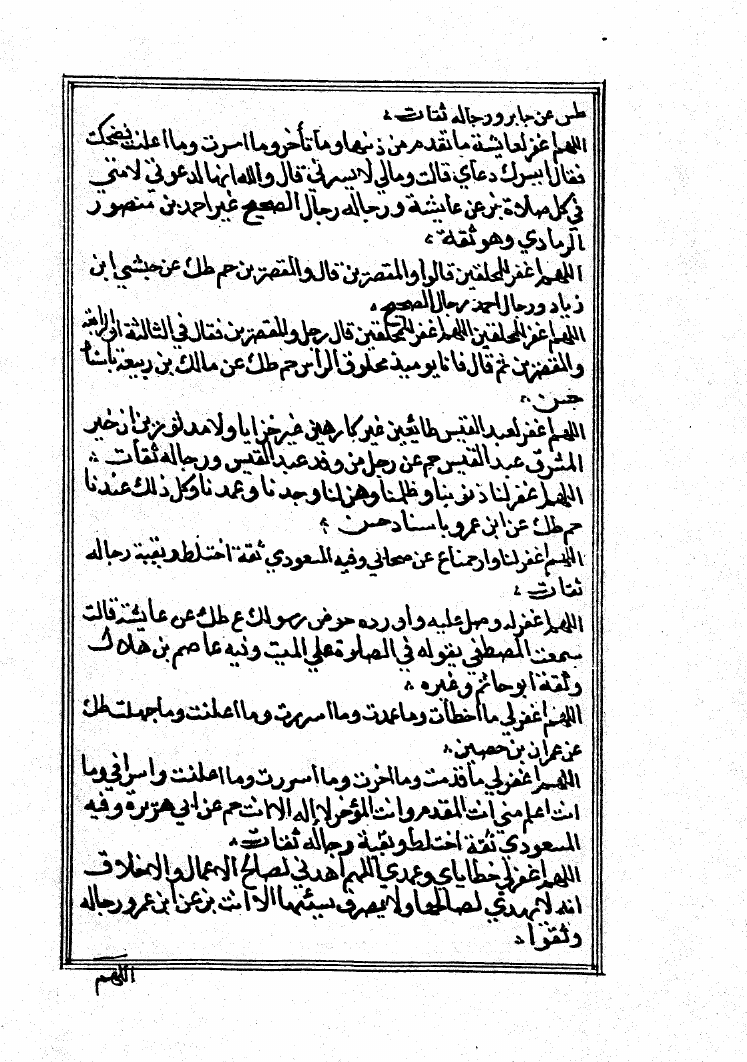 طس عن جابر ورجاله ثقات
اللهم اغفر لعايشة ما تقدم من ذنبها وما تأخر وما اسرت وما اعلنت فضحكت
فقال ايسرك دعاي قالت ومالي لا يسرني قال والله انها لدعوتي لامتي
في كل صلاة بز عن عايشة ورجاله رجال الصحيح غير احمد بن منصور
الرمادي وهو ثقة
اللهم اغفر للمحلقين قالوا والمقصرين قال والمقصرين حم طك عن حبشي ابن
زياد ورجال احمد رجال الصحيح
اللهم اغفر للمحلقين اللهم اغفر للمحلقين قال رجل وللمقصرين فقال في الثالثة او الرابعة
والمقصرين ثم قال فانا يوميذ محلوق الراس حم طك عن مالك بن ربيعة باسناد
حسن
اللهم اغفر لعبد القيس طائعين غير كارهين غير خزايا ولا موتورين ان خير
المشرق عبد القيس حم عن رجل من وفد عبد القيس ورجاله ثقات
اللهم اغفر لنا ذنوبنا وظلمنا وهزلنا وجدنا وعمدنا وكل ذلك عندنا
حم طك عن ابن عمرو باسناد حسن
اللهم اغفر لنا وارحمنا ع عن صحابي وفيه المسعودي ثقة اختلط وبقية رجاله
ثقات
اللهم اغفر له وصل عليه واورده حوض رسولك ع طك عن عايشة قالت
سمعت المصطفى يقوله في الصلوة علي الميت وفيه عاصم بن هلال
وثقه ابو حاتم وغيره
اللهم اغفر لي ما اخطأت وما عمدت وما اسررت وما اعلنت وما جهلت طك
عن عمران بن حصين
اللهم اغفر لي ما قدمت وما اخرت وما أسررت وما اعلنت واسرافي وما
انت اعلم مني انت المقدم وانت المؤخر لا إله الا انت حم عن ابي هريرة وفيه
المسعودي ثقة اختلط وبقية رجاله ثقات
اللهم اغفر لي خطاياي وعمدي اللهم اهدني لصالح الاعمال والاخلاق
انه لا يهدي لصالحها ولا يصرف سيئها الا انت بز عن ابن عمر ورجاله
وثقوا
اللهم